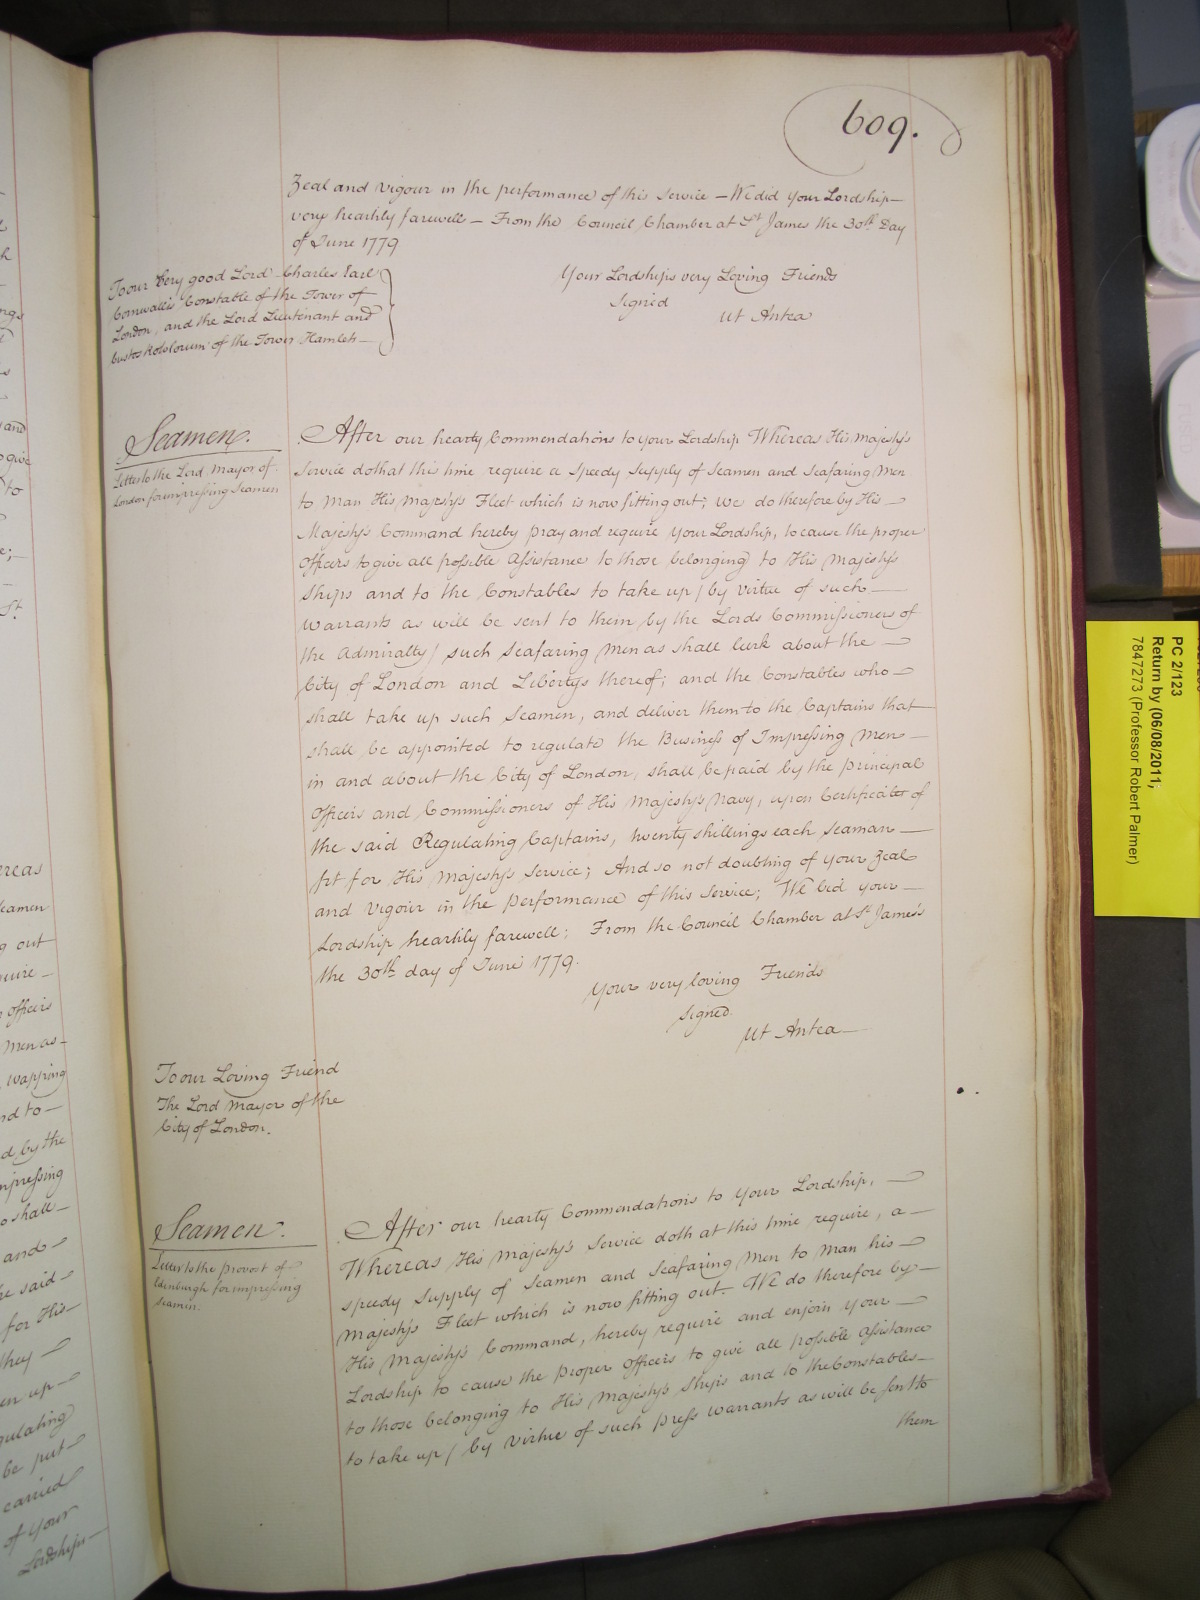 609.
Zeal and Vigour in the performance of this Service – We did Your Lordship –
very heartily farewell – From the Council Chamber at St James the 30th Day
of June 1779
To our Very good Lord Charles Earl
Cornwallis Constable of the Tower of
London, and the Lord Lieutenant and
Custos Rotolorum of the Tower Hamlets –
Your Lordships very Loving Friends
Signed
Ut Antea
Seamen.
Letter to the Lord Mayor of
London for impressing Seamen
After our hearty Commendations to your Lordship Whereas His Majesty's
Service doth at this time require a Speedy Supply of Seamen and Seafaring Men
to Man His Majesty's Fleet which is now fitting out; we do therefore by His –
Majesty's Command hereby pray and require Your Lordship, to cause the proper
Officers to give all possible Assistance to those belonging to His Majesty's
Ships and to the Constables to take up / by virtue of such –
Warrants as will be sent to them by the Lords Commissioners of
the Admiralty / such Seafaring Men as shall lurk about the –
City of London and Libertys thereof; and the Constables who –
shall take up such Seamen, and deliver them to the Captains that
shall be appointed to regulate the Business of Impressing Men –
in and about the City of London, shall be paid by the Principal
Officers and Commissioners of His Majesty's Navy, upon Certificates of
the said Regulating Captains, twenty shillings each Seaman –
fit for His Majesty's Service; And so not doubting of your Zeal
and Vigour in the Performance of this Service; We bid your –
Lordship heartily farewell; From the Council Chamber at St James's
the 30th day of June 1779.
Your very loving Friends
Signed
Ut Antea –
To our Loving Friend
The Lord Mayor of the
City of London.
Seamen.
Letter to the Provost of –
Edinburgh for impressing
Seamen.
After our hearty Commendations to Your Lordship, –
Whereas His Majesty's Service doth at this time require, a –
speedy Supply of Seamen and Seafaring Men to Man his –
Majesty's Fleet which is now fitting out. We do therefore by –
His Majesty's Command, hereby require and enjoin Your –
Lordship to cause the Proper Officers to give all possible Assistance
to those belonging to His Majesty's Ships and to the Constables –
to take up / by Virtue of such Press Warrants as will be sent to
them
PC 2/123
Return by (06/08/2011;
7847273 (Professor Robert Palmer)
ereas
Seamen
g out
quire –
Officers
Men as –
Wapping
nd to –
d by the
mpressing
o shall –
and –
he said –
for His –
they –
en up –
gulating
be put –
carried
of Your
Lordships –